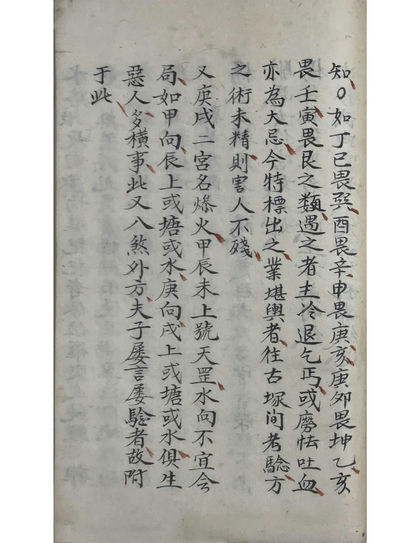 知〇如丁巳畏巽酉畏辛申畏庚亥庚卯畏坤乙亥
畏壬寅畏艮之類遇之者主冷退乞丐或癆怯吐血
亦為大忌今特標出之業堪輿者往古塚間考驗方
之術未精則害人不殘
又庚戌二宮名爍火甲辰未上號天罡水向不宜合
局如甲向辰上或塘或水庚向戌上或塘或水俱生
惡人多橫事此又八煞外方夫子屡言屡驗者故附
于此